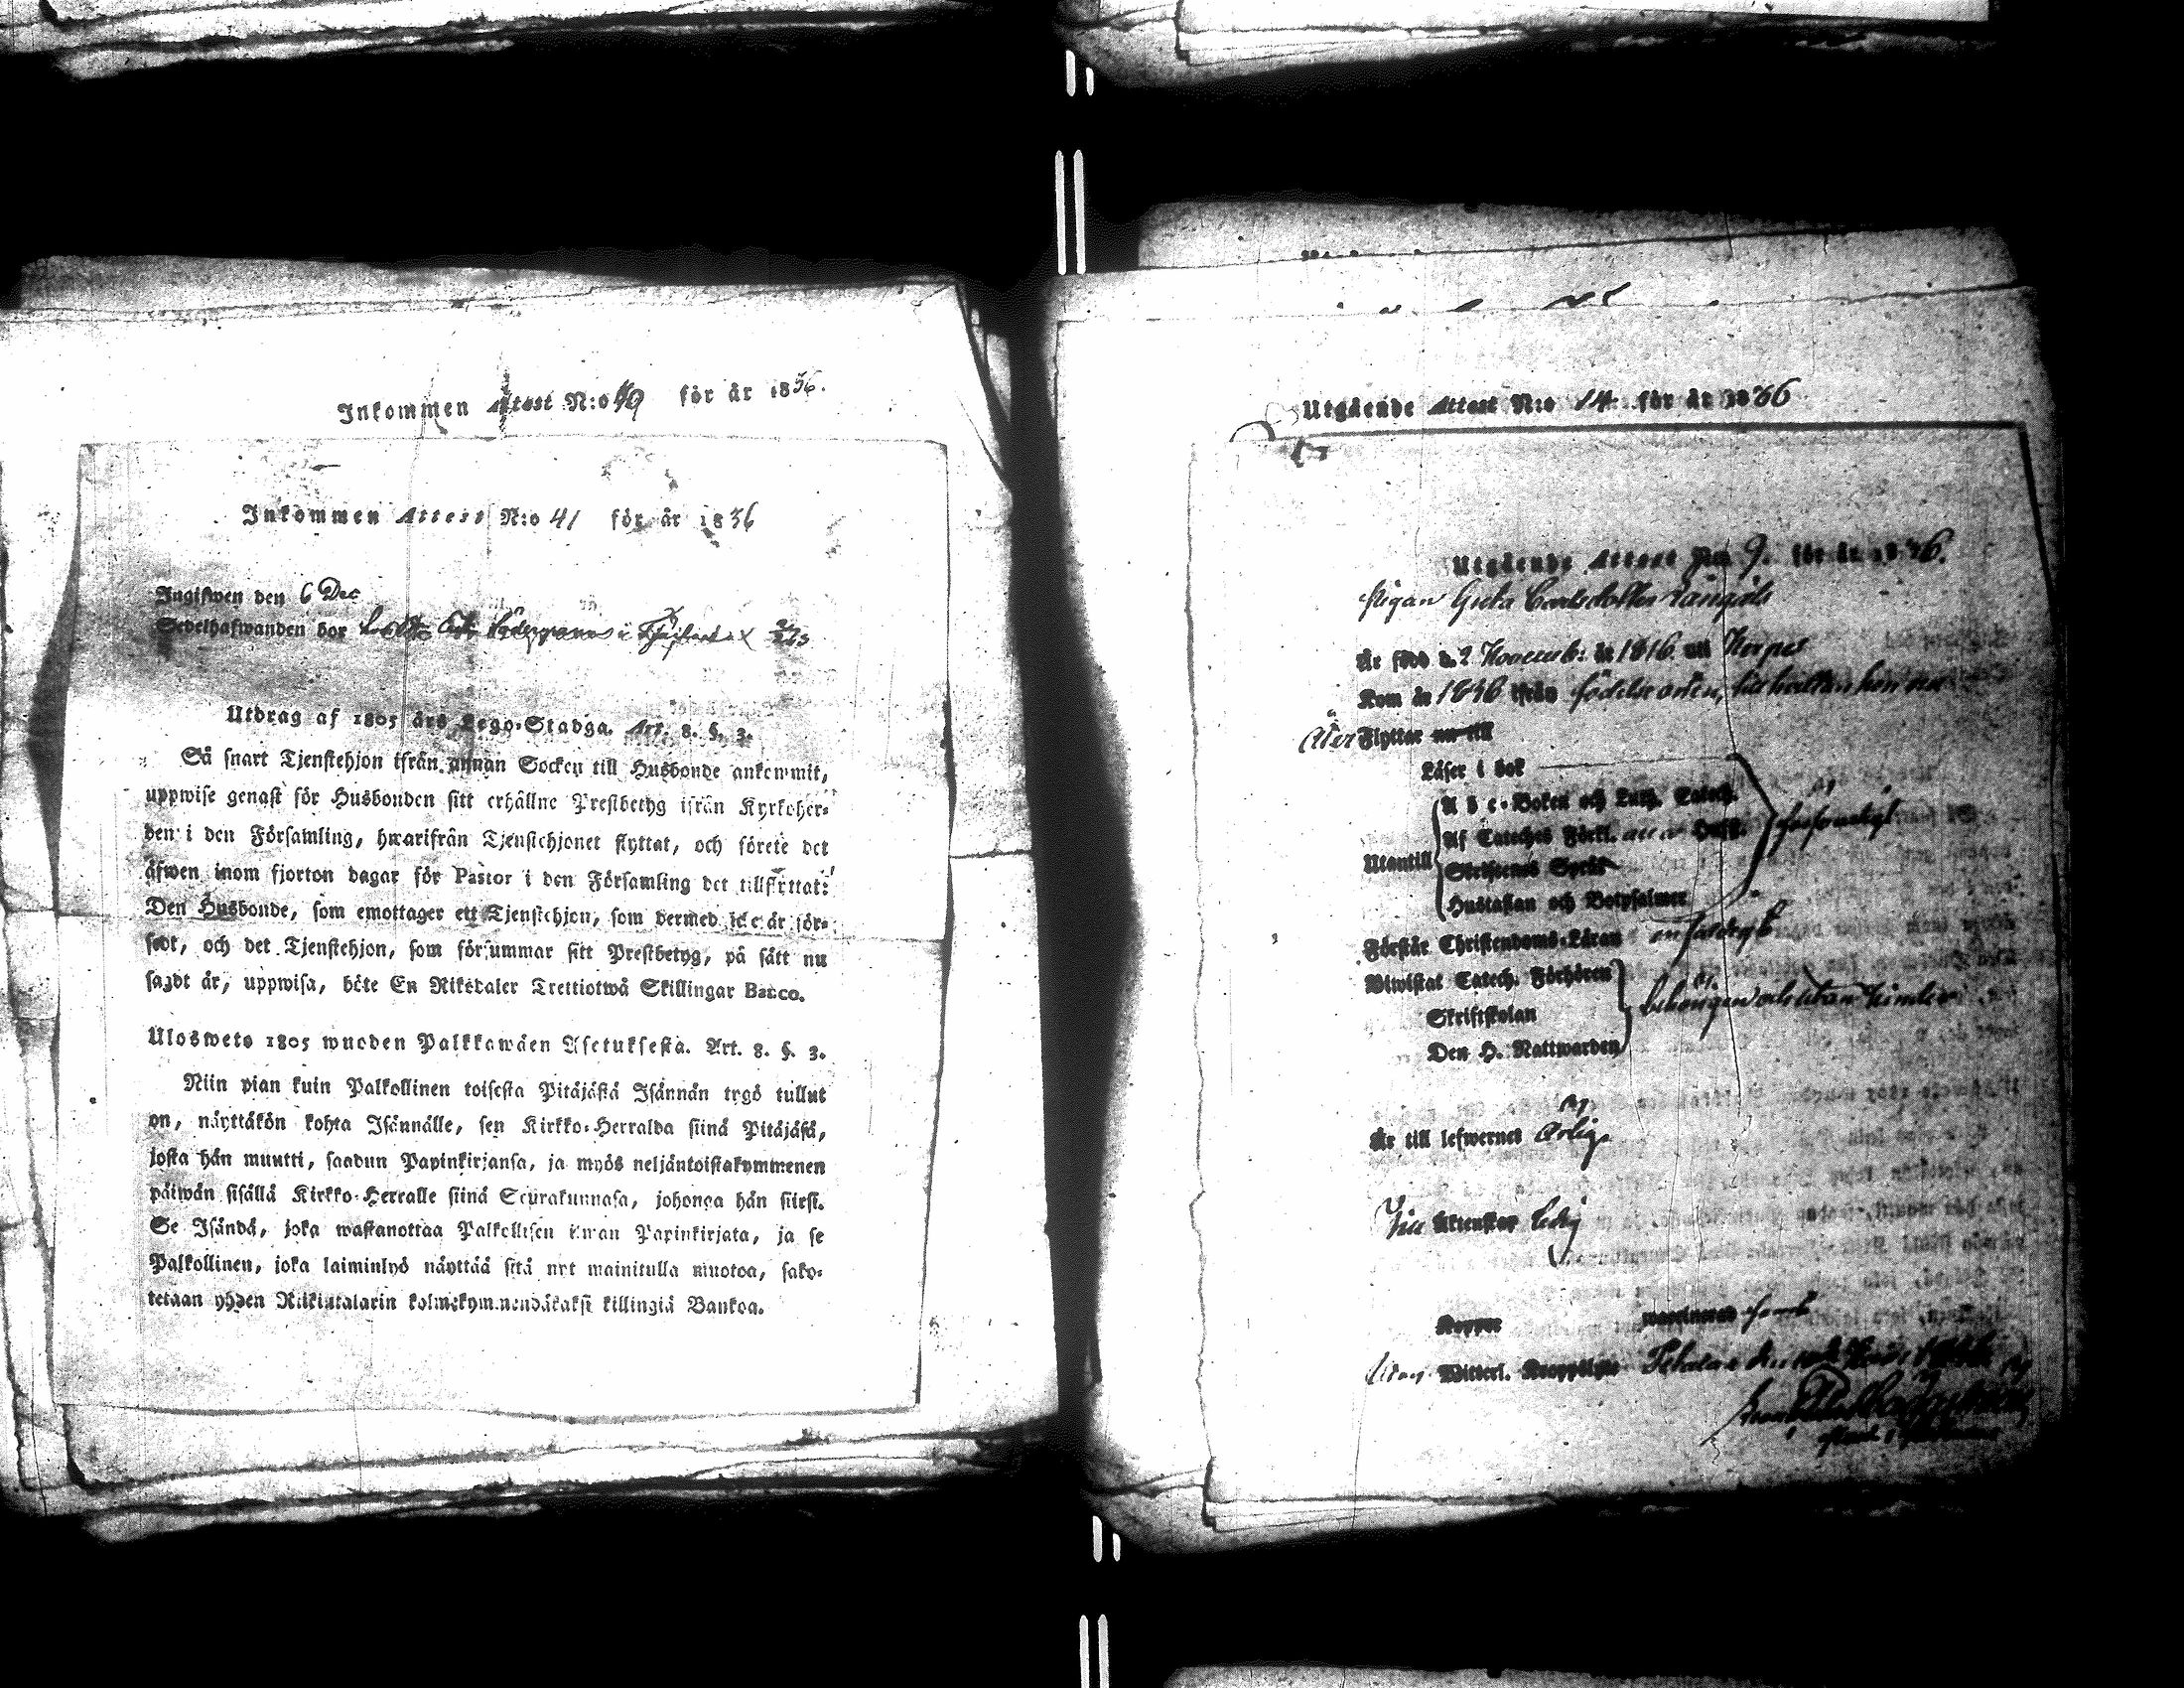 Inkommen Attest N:o 40 för år 1836.
Inkommen Attest N:o 41 för år 1836
Ingifwen den 6 Dec
Sedelhafwanden bor i
Utdrag af 1805 års Lego-Stadga. Art. 8. §. 3.
Så snart Tjenstehjon ifrån annan Socken till Husbonde ankommit,
uppwise genast för Husbonden sitt erhållne Prestbetyg ifrån Kyrkoher-
den i den Församling, hwarifrån Tjenstehjonet flyttat, och förete det
äfwen inom fjorton dagar för Pastor i den Församling det tillflyttat:
Den Husbonde, som emottager ett Tjenstehjon, som dermed icke är för-
sedt, och det Tjenstehjon, som försummar sitt Prestbetyg, på sätt nu
sagdt är, uppwisa, böte En Riksdaler Trettiotwå Skillingar Banco.
Ulosweto 1805 wuoden Palkkawäen Asetuksesta. Art. 8. §. 3.
Niin pian kuin Palkollinen toisesta Pitäjästä Isännän tygö tullut
on, näyttäkön kohta Isännälle, sen Kirkko-Herralda siinä Pitäjäsä,
josta hän muutti, saadun Papinkirjansa, ja myös neljäntoistakymmenen
päiwän sisällä Kirkko-Herralle siinä Seurakunnasa, johonga hän siirsi.
Se Isändä, joka wastanottaa Palkollisen ilman Papinkirjata, ja se
Palkollinen, joka laiminlyö näyttää sitä nyt mainitulla muotoa, sako-
tetaan yhden Riikintalarin kolmekymmendäkaksi killingiä Bankoa.
Utgående Attest N:o 14 för år 1836
Utgående Attest N:o 9. för år 1836.
Pigan Greta Carlsdotter
Är född d. 2 Novemb: år 1816 uti Korpo
Kom år 1836 ifrån födelse orten, hon nu
åter Flyttar nu till
Läser i bok
Utantill
A b c-Boken och Luth. Catech.
Af Cateches Förkl. Husft.
Skriftenes Språk
Hustaflan och Botpsalmer
försvarligt
Förstår Christendoms-Läran enfaldigt
Biwistat Catech. Förhören
Skriftskolan
Den H. Nattwarden
behörigen och utan hinder
Är till lefwernet ärlig
Till Äktenskap ledig
Koppor vaccinerad
utan Witterl. Kroppslyte